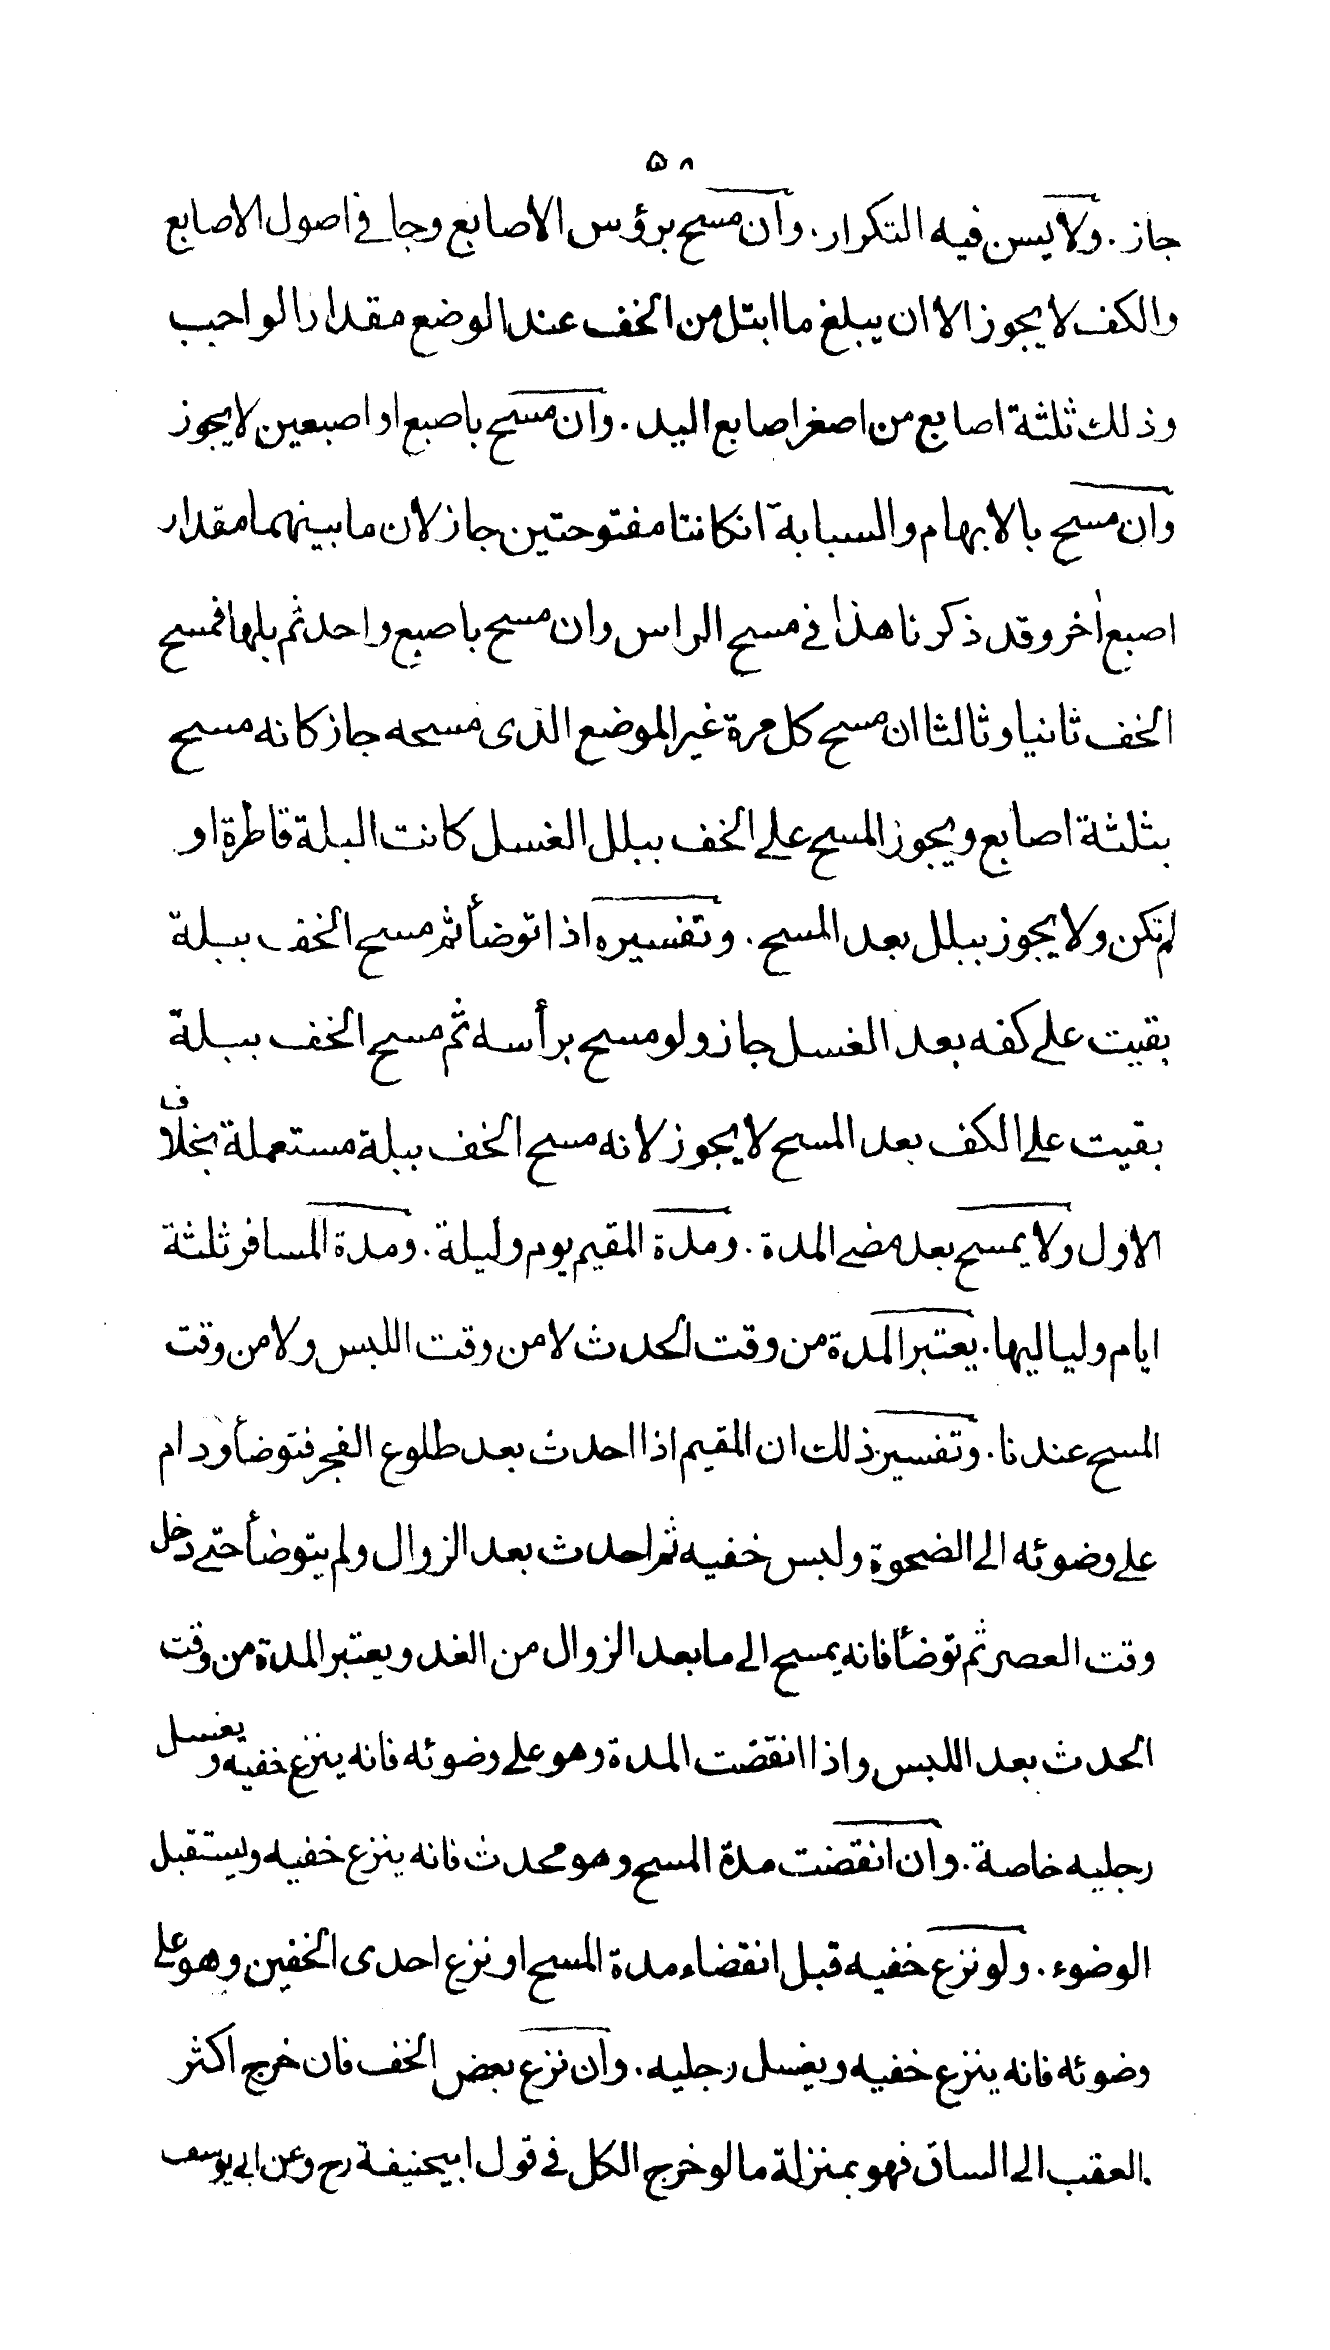 ٥٨
جاز. ولا يسن فيه التكرار. وان مسح برؤس الاصابع وجافى اصول الاصابع
والكف لا يجوز الا ان يبلغ ما ابتل من الخف عند الوضع مقدار الواجب
وذلك ثلثة اصابع من اصغر اصابع اليد. وان مسح باصبع او اصبعين لا يجوز
وان مسح بالابهام والسبابة انكانتا مفتوحتين جاز لان ما بينهما مقدار
اصبع أخر وقد ذكرنا هذا فى مسح الراس وان مسح باصبع واحد ثم بلها فمسح
الخف ثانيا وثالثا ان مسح كل مرة غير الموضع الذى مسحه جاز كانه مسح
بثلثة اصابع ويجوز المسح على الخف ببلل الغسل كانت البلة قاطرة او
لم تكن ولا يجوز ببلل بعد المسح. وتفسيره اذا توضأ ثم مسح الخف ببلة
بقيت على كفه بعد الغسل جاز ولو مسح برأسه ثم مسح الخف ببلة
بقيت على الكف بعد المسح لا يجوز لانه مسح الخف ببلة مستعملة بخلاف
الاول ولا يمسح بعد مضى المدة. ومدة المقيم يوم وليلة. ومدة المسافر ثلثة
ايام ولياليها. يعتبر المدة من وقت الحدث لا من وقت اللبس ولا من وقت
المسح عندنا. وتفسير ذلك ان المقيم اذا احدث بعد طلوع الفجر فتوضأ ودام
على وضوئه الى الضحوة ولبس خفيه ثم احدث بعد الزوال ولم يتوضأ حتى دخل
وقت العصر ثم توضأ فانه يمسح الى ما بعد الزوال من الغد ويعتبر المدة من وقت
الحدث بعد اللبس واذا انقضت المدة وهو على وضوئه فانه ينزع خفيه ويغسل
رجليه خاصة. وان انقضت مدة المسح وهو محدث فانه ينزع خفيه ويستقبل
الوضوء. ولو نزع خفيه قبل انقضاء مدة المسح او نزع احدى الخفين وهو على
وضوئه فانه ينزع خفيه ويغسل رجليه. وان نزع بعض الخف فان خرج اكثر
العقب الى الساق فهو بمنزلة ما لو خرج الكل فى قول ابيحنيفة رح وعن ابى يوسف